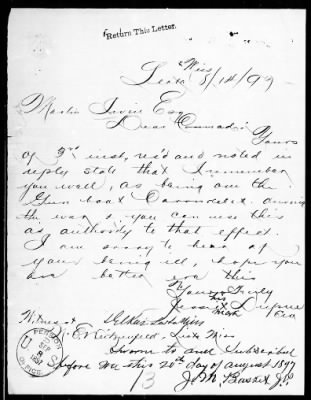 Return This Letter.
Miss
8/14/97
Martin Irvine Esq
Dear Comrade
Yours
of 3rd inst, rec'd and noted in
reply state that I remember
you well, as being on the
Gun boat Carondelet during
the war & you can use this
as authority to that effect.
I am sorry to hear of
your being ill, hope you
are better ere this
Yours Truly
his
mark
Witness
Miss
Sworn to and Subscribed
before me this 20th day of august 1897
J. M. Basset J.P.
U. S. PENSION OFFICE
SEP
8
1897
13